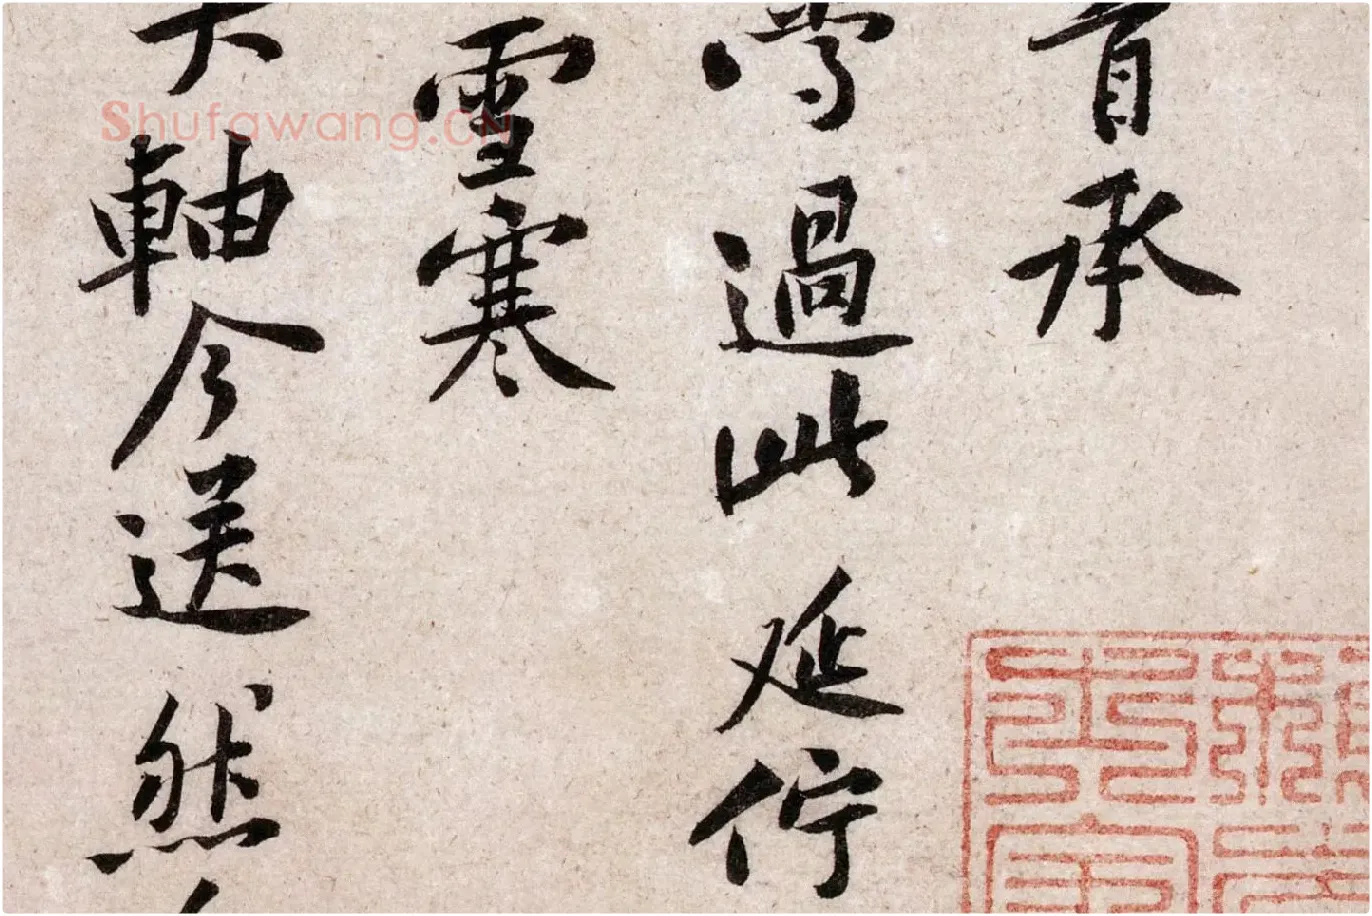 首承
過此延佇
雪寒
軸今送然
Shufawang.CN